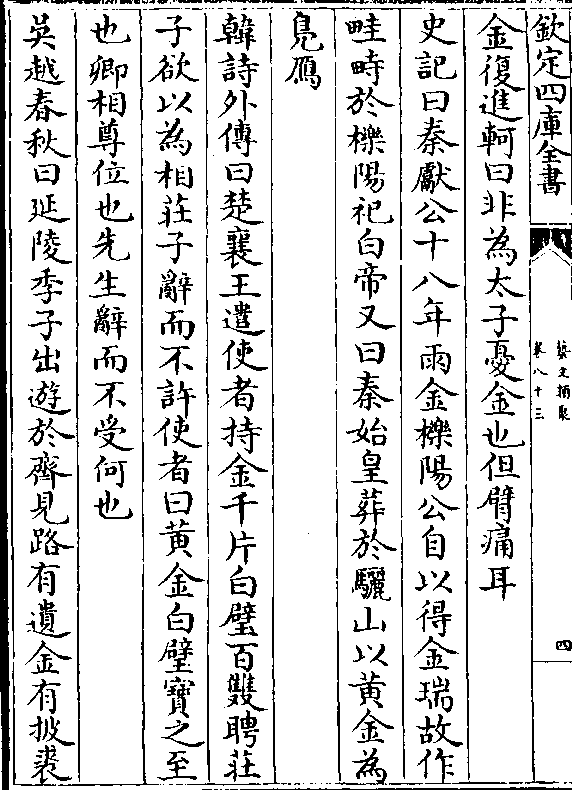 欽定四庫全書
藝文類聚
卷八十三
四
金復進軻曰非為太子憂金也但臂痛耳
史記曰秦獻公十八年雨金櫟陽公自以得金瑞故作
畦畤於櫟陽祀白帝又曰秦始皇葬於驪山以黃金為
鳧鴈
韓詩外傳曰楚襄王遣使者持金千片白璧百雙聘莊
子欲以為相莊子辭而不許使者曰黃金白璧寶之至
也卿相尊位也先生辭而不受何也
吳越春秋曰延陵季子出遊於齊見路有遺金有披裘